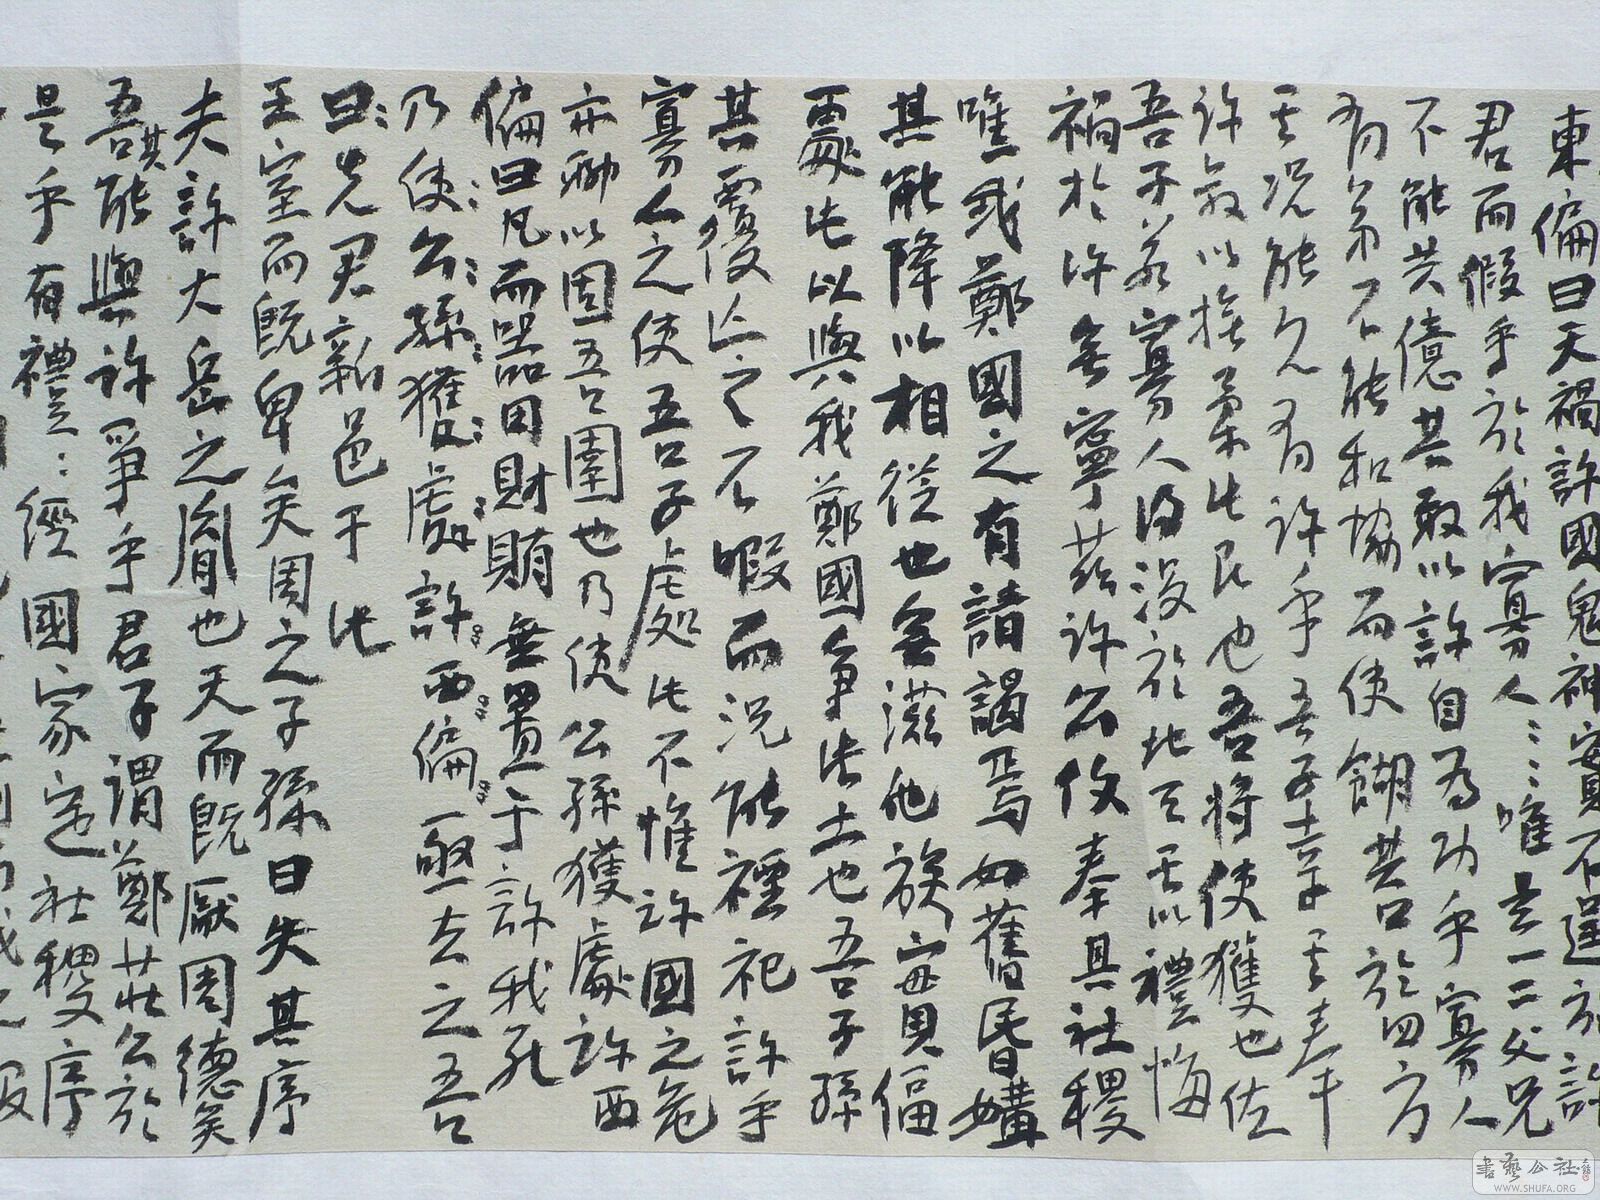 東偏曰天禍許國鬼神實不逞於許
君而假手於我寡人寡人唯是一二父兄
不能共億其敢以許自為功乎寡人
有弟不能和協而使餬其口於四方
其況能久有許乎吾子其奉
許叔以撫柔此民也吾將使獲也佐
吾子若寡人得沒於地天其以禮悔
禍於許無寧茲許公復奉其社稷
唯我鄭國之有請謁焉如舊昏媾
其能降以相從也無滋他族實偪
處此以與我鄭國爭此土也吾子孫
其覆亡之不暇而況能禋祀許乎
寡人之使吾子處此不惟許國之危
亦聊以固吾圉也乃使公孫獲處許西
偏曰凡而器用財賄無寘于許我死
乃使公孫獲處許西偏亟去之吾
曰先君新邑于此
王室而既卑矣周之子孫日失其序
夫許大岳之胤也天而既厭周德矣
吾其能與許爭乎君子謂鄭莊公於
是乎有禮禮經國家定社稷序
書藝公社
WWW.SHUFA.ORG